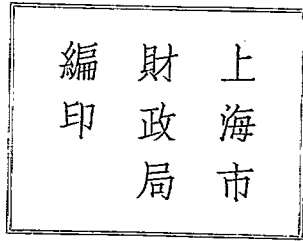 上海市
財政局
編印